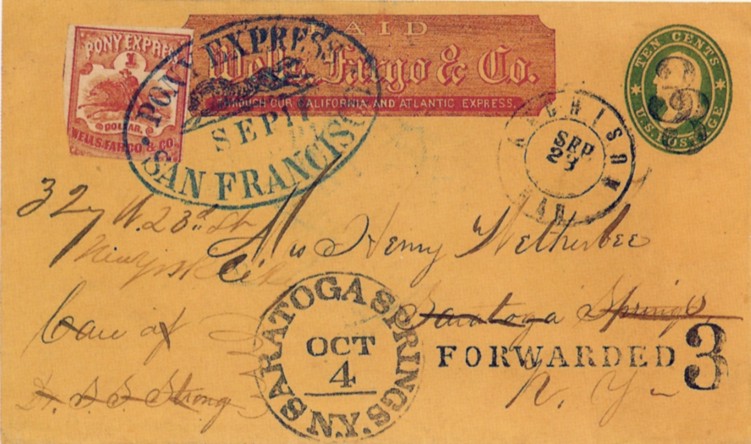 PAID
Wells, Fargo & Co.
THROUGH OUR CALIFORNIA, AND ATLANTIC EXPRESS.
PONY EXPRESS
1
DOLLAR.
WELLS, FARGO & CO.
PONY EXPRESS
SEP 17
SAN FRANCISCO
TEN CENTS
U.S. POSTAGE
3
ATCHISON
SEP
23
KAN.
32 W. 23rd St
New York City
Mrs Henry Wetherbee
Saratoga Springs
Care of
Dr. S. S. Strong
N. Y.
SARATOGA SPRINGS. N.Y.
OCT
4
FORWARDED 3